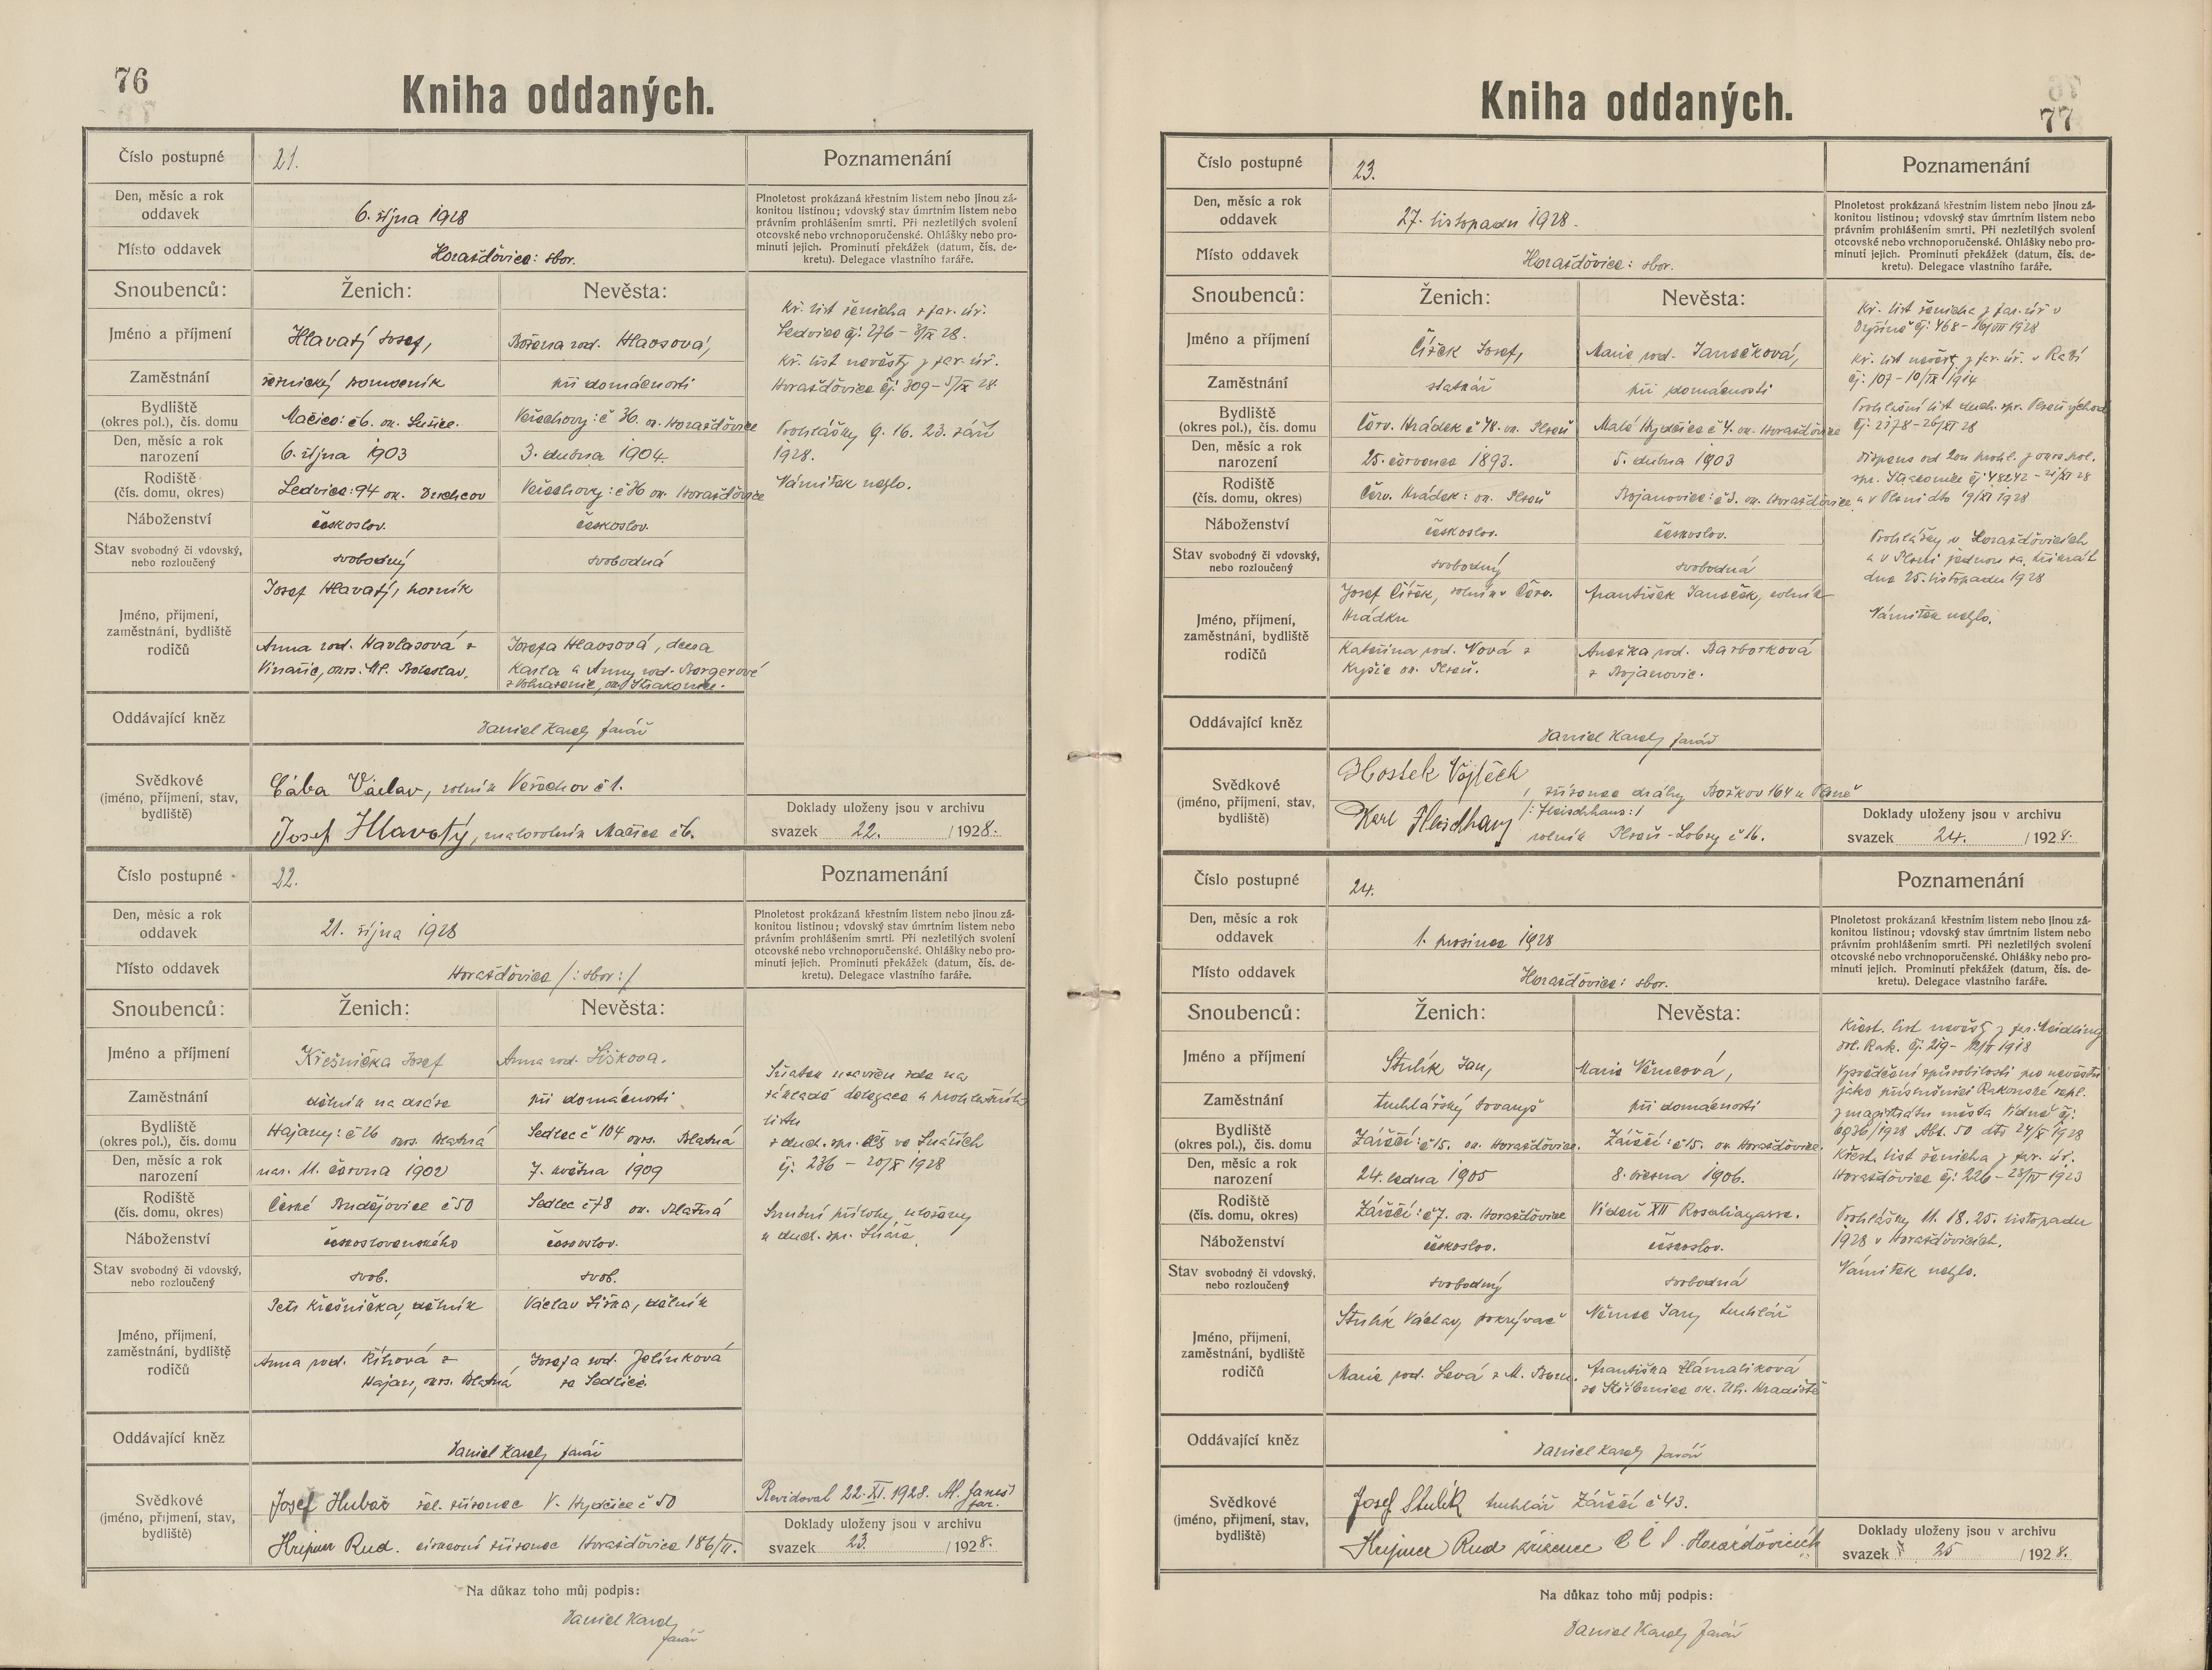 76
Kniha oddaných.
Číslo postupné 21.
Poznamenání
Den, měsíc a rok oddavek 6. října 1928
Plnoletost prokázaná křestním listem nebo jinou zá-
konitou listinou; vdovský stav úmrtním listem nebo
právním prohlášením smrti. Při nezletilých svolení
otcovské nebo vrchnoporučenské. Ohlášky nebo pro-
minutí jejich. Prominutí překážek (datum, čís. de-
kretu). Delegace vlastního faráře.
Místo oddavek Horažďovice: sbor.
Snoubenců: Ženich: Nevěsta:
Jméno a příjmení Hlavatý Josef, Božena rod. Hlaosová,
Zaměstnání řeznický pomocník při domácnosti
Bydliště (okres pol.), čís. domu Mačice: č 6. ok. Sušice. Veřechovy: č 36. ok. Horažďovice
Den, měsíc a rok narození 6. října 1903 3. dubna 1904.
Rodiště (čís. domu, okres) Ledvice: 94 ok. Duchcov Veřechovy: č 36 ok. Horažďovice
Náboženství českoslov. českoslov.
Stav svobodný či vdovský, nebo rozloučený svobodný svobodná
Jméno, příjmení, zaměstnání, bydliště rodičů
Josef Hlavatý, horník
Anna rod. Havlasová z
Vinařic, okrs. Ml. Boleslav.
Josefa Hlaosová, dcera
Karla a Anny rod. Bergerové
Kř. list ženicha z far. úř.
Ledvice čj: 276 – 3/IX 28.
Kř. list nevěsty z far. úř.
Horažďovice čj: 309 – 5/IX 28.
Prohlášky 9. 16. 23. září
1928.
Námitek nešlo.
Oddávající kněz Daniel Karely farář
Svědkové (jméno, příjmení, stav, bydliště)
Cába Václav, rolník Veřechov č 1.
Josef Hlavatý, malorolník Mačice č 6.
Doklady uloženy jsou v archivu
svazek 22. / 1928.
Číslo postupné 22.
Poznamenání
Den, měsíc a rok oddavek 21. října 1928
Plnoletost prokázaná křestním listem nebo jinou zá-
konitou listinou; vdovský stav úmrtním listem nebo
právním prohlášením smrti. Při nezletilých svolení
otcovské nebo vrchnoporučenské. Ohlášky nebo pro-
minutí jejich. Prominutí překážek (datum, čís. de-
kretu). Delegace vlastního faráře.
Místo oddavek Horažďovice /: sbor :/
Snoubenců: Ženich: Nevěsta:
Jméno a příjmení Křešnička Josef Anna rod. Šišková.
Zaměstnání dělník na dráze při domácnosti
Bydliště (okres pol.), čís. domu Hajany: č 26 okrs. Blatná Sedlec č 104 okrs. Blatná
Den, měsíc a rok narození nar. 11. června 1902 7. května 1909
Rodiště (čís. domu, okres) České Budějovice č 50 Sedlec č 78 ok. Blatná
Náboženství československého českoslov.
Stav svobodný či vdovský, nebo rozloučený svob. svob.
Jméno, příjmení, zaměstnání, bydliště rodičů
Petr Křešnička, dělník
Anna rod. Říhová z
Hajan, okrs. Blatná
Václav Šiška, dělník
Josefa rod. Jelínková
ze Sedlice.
Sňatek uzavřen zde na
základě delegace a prohláškového
listu
z duch. spr. čsl ve Lnářích
čj: 236 – 20/X 1928
Snubní přílohy uloženy
u duch. spr. Lnáře
Oddávající kněz Daniel Karely farář
Svědkové (jméno, příjmení, stav, bydliště)
Josef Hubač žel. zřízenec V. Hydčice č 50
Hripner Rud. církevní zřízenec Horažďovice 186/II.
Revidoval 22. XI. 1928. Al. Janeš
far.
Doklady uloženy jsou v archivu
svazek 23. / 1928.
Na důkaz toho můj podpis:
Daniel Karely
farář
77
Kniha oddaných.
Číslo postupné 23.
Poznamenání
Den, měsíc a rok oddavek 27. listopadu 1928.
Plnoletost prokázaná křestním listem nebo jinou zá-
konitou listinou; vdovský stav úmrtním listem nebo
právním prohlášením smrti. Při nezletilých svolení
otcovské nebo vrchnoporučenské. Ohlášky nebo pro-
minutí jejich. Prominutí překážek (datum, čís. de-
kretu). Delegace vlastního faráře.
Místo oddavek Horažďovice: sbor.
Snoubenců: Ženich: Nevěsta:
Jméno a příjmení Čížek Josef, Marie rod. Janečková,
Zaměstnání statkář při domácnosti
Bydliště (okres pol.), čís. domu Červ. Hrádek č 48. ok. Plzeň Malé Hydčice č 4. ok. Horažďovice
Den, měsíc a rok narození 25. července 1893. 5. dubna 1903
Rodiště (čís. domu, okres) Červ. Hrádek: ok. Plzeň Bojanovice: č 3. ok. Horažďovice
Náboženství českoslov. českoslov.
Stav svobodný či vdovský, nebo rozloučený svobodný svobodná
Jméno, příjmení, zaměstnání, bydliště rodičů
Josef Čížek, rolník v Červ.
Hrádku
Kateřina rod. Nová z
Kyšic ok. Plzeň.
František Janeček, rolník
Anežka rod. Barborková
z Bojanovic.
Kř. list ženicha z far. úř v
Dýšině čj: 468 – 16/VII 1928
Kř. list nevěsty z far. úř. v Rabí
čj: 107 – 10/IX 1914
Prohlášní list duch. spr.
čj: 2178 – 26/XI 28
Dispens od 2ou prohl. z okrs. pol.
spr. Strakonice čj: 48242 – 21/XI 28
a v Plzni dto 19/XI 1928
Prohlášky v Horažďovicích
a v Plzni jednou za třikrát
dne 25. listopadu 1928
Námitek nešlo.
Oddávající kněz Daniel Karely farář
Svědkové (jméno, příjmení, stav, bydliště)
Hostek Vojtěch, zřízenec dráhy Božkov 164 u Plzně
Karl Fleischhans /: Fleischhans :/
rolník Plzeň-Lobzy č 16.
Doklady uloženy jsou v archivu
svazek 24. / 1928.
Číslo postupné 24.
Poznamenání
Den, měsíc a rok oddavek 1. prosince 1928
Plnoletost prokázaná křestním listem nebo jinou zá-
konitou listinou; vdovský stav úmrtním listem nebo
právním prohlášením smrti. Při nezletilých svolení
otcovské nebo vrchnoporučenské. Ohlášky nebo pro-
minutí jejich. Prominutí překážek (datum, čís. de-
kretu). Delegace vlastního faráře.
Místo oddavek Horažďovice: sbor.
Snoubenců: Ženich: Nevěsta:
Jméno a příjmení Stulík Jan, Marie Němcová,
Zaměstnání truhlářský tovaryš při domácnosti
Bydliště (okres pol.), čís. domu Zářečí: č 15. ok. Horažďovice. Zářečí: č 15. ok. Horažďovice.
Den, měsíc a rok narození 24. ledna 1905 8. března 1906.
Rodiště (čís. domu, okres) Zářečí: č 7. ok. Horažďovice Vídeň XII Rosaliagasse.
Náboženství českoslov. českoslov.
Stav svobodný či vdovský, nebo rozloučený svobodný svobodná
Jméno, příjmení, zaměstnání, bydliště rodičů
Stulík Václav, pokrývač
Marie rod. Levá z M. Boru.
Němec Jan, truhlář
Františka Hámalíková
ze Stříbrnice ok. Uh. Hradiště
Křest. list nevěsty z far. Meidling
dol. Rak. čj: 219 – 12/II 1918
Vysvědčení způsobilosti pro nevěstu
jako příslušnici Rakouské repl.
z magistrátu města Vídně čj:
6936/1928 Abt. 50 dto 24/X 1928
Křest. list ženicha z far. úř.
Horažďovice čj: 226 – 28/IV 1923
Prohlášky 11. 18. 25. listopadu
1928 v Horažďovicích.
Námitek nešlo.
Oddávající kněz Daniel Karely farář
Svědkové (jméno, příjmení, stav, bydliště)
Josef Stulík truhlář Zářečí č 43.
Hripner Rud zřízenec C Č S. Horažďovicích
Doklady uloženy jsou v archivu
svazek 25 / 1928.
Na důkaz toho můj podpis:
Daniel Karely farář